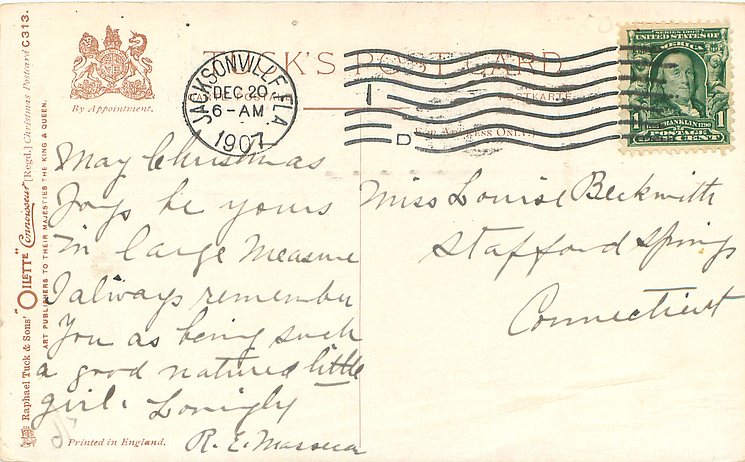 TUCK'S POST CARD
By Appointment.
JACKSONVILLE, FLA.
DEC 20
6-AM
1907
1
D
POSTKARTE
(FOR ADDRESS ONLY.)
SERIES 1902
UNITED STATES OF
AMERICA
FRANKLIN 1790
1 POSTAGE 1
ONE CENT
May Christmas
Joys be yours
in large measure
I always remember
You as being such
a good natured little
girl. Lovingly
R. E.
Miss Louise Beckwith
Stafford Springs
Connecticut
Raphael Tuck & Sons' "OILETTE" "Connoisseur" [Regd.] Christmas Postcard C313.
ART PUBLISHERS TO THEIR MAJESTIES THE KING & QUEEN.
Printed in England.